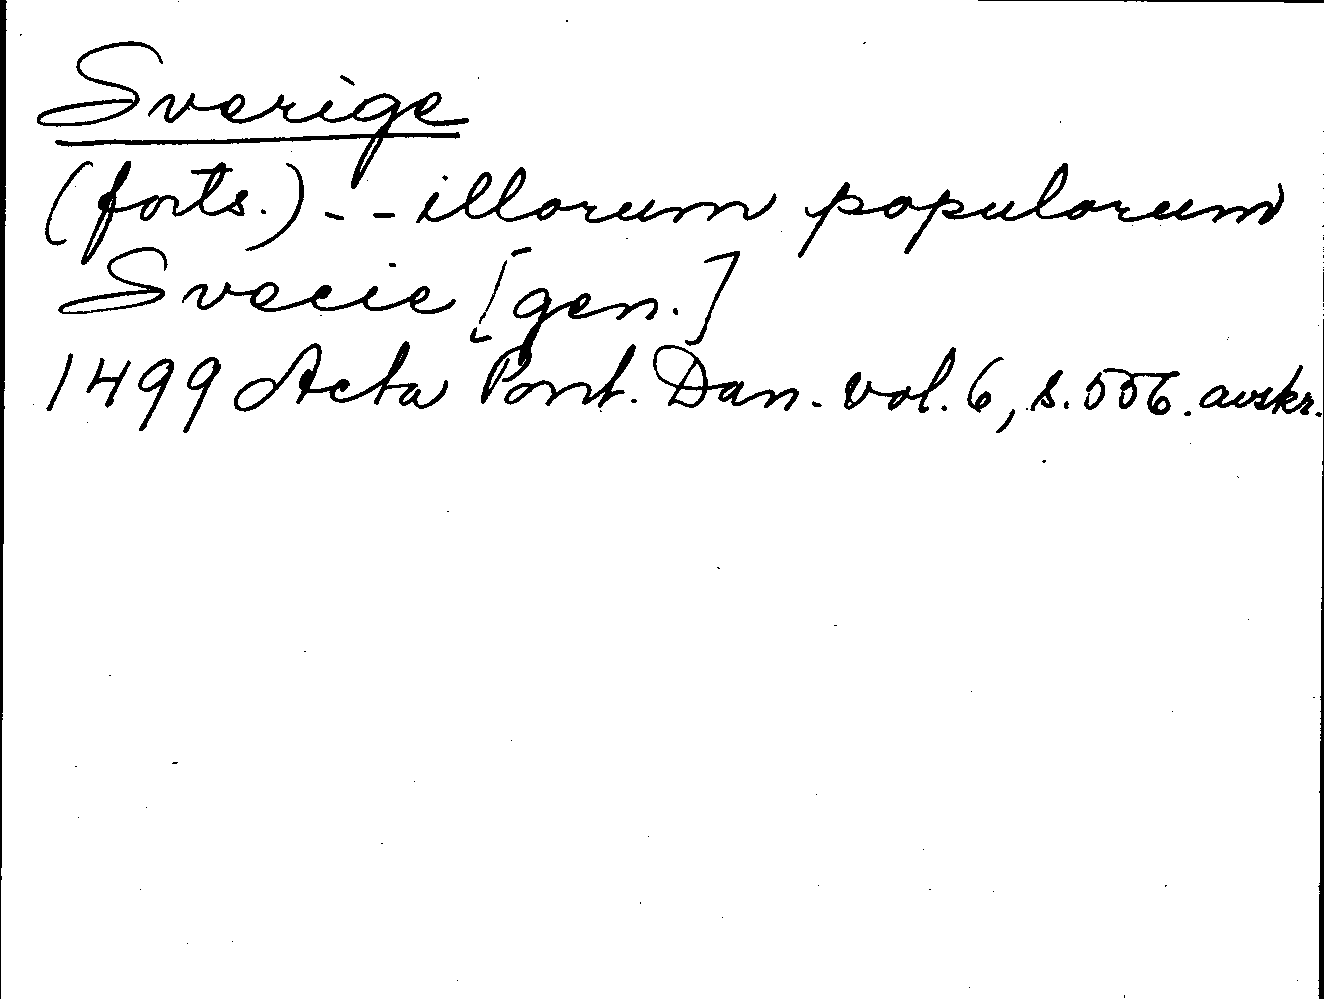 Sverige
(forts.) - - illorum populorum
Svecie [gen.]
1499 Acta Pont. Dan. vol. 6, s. 556. avskr.